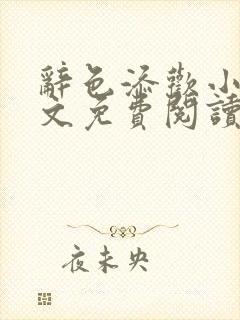 辭色添歡小
文免費閱讀
夜未央